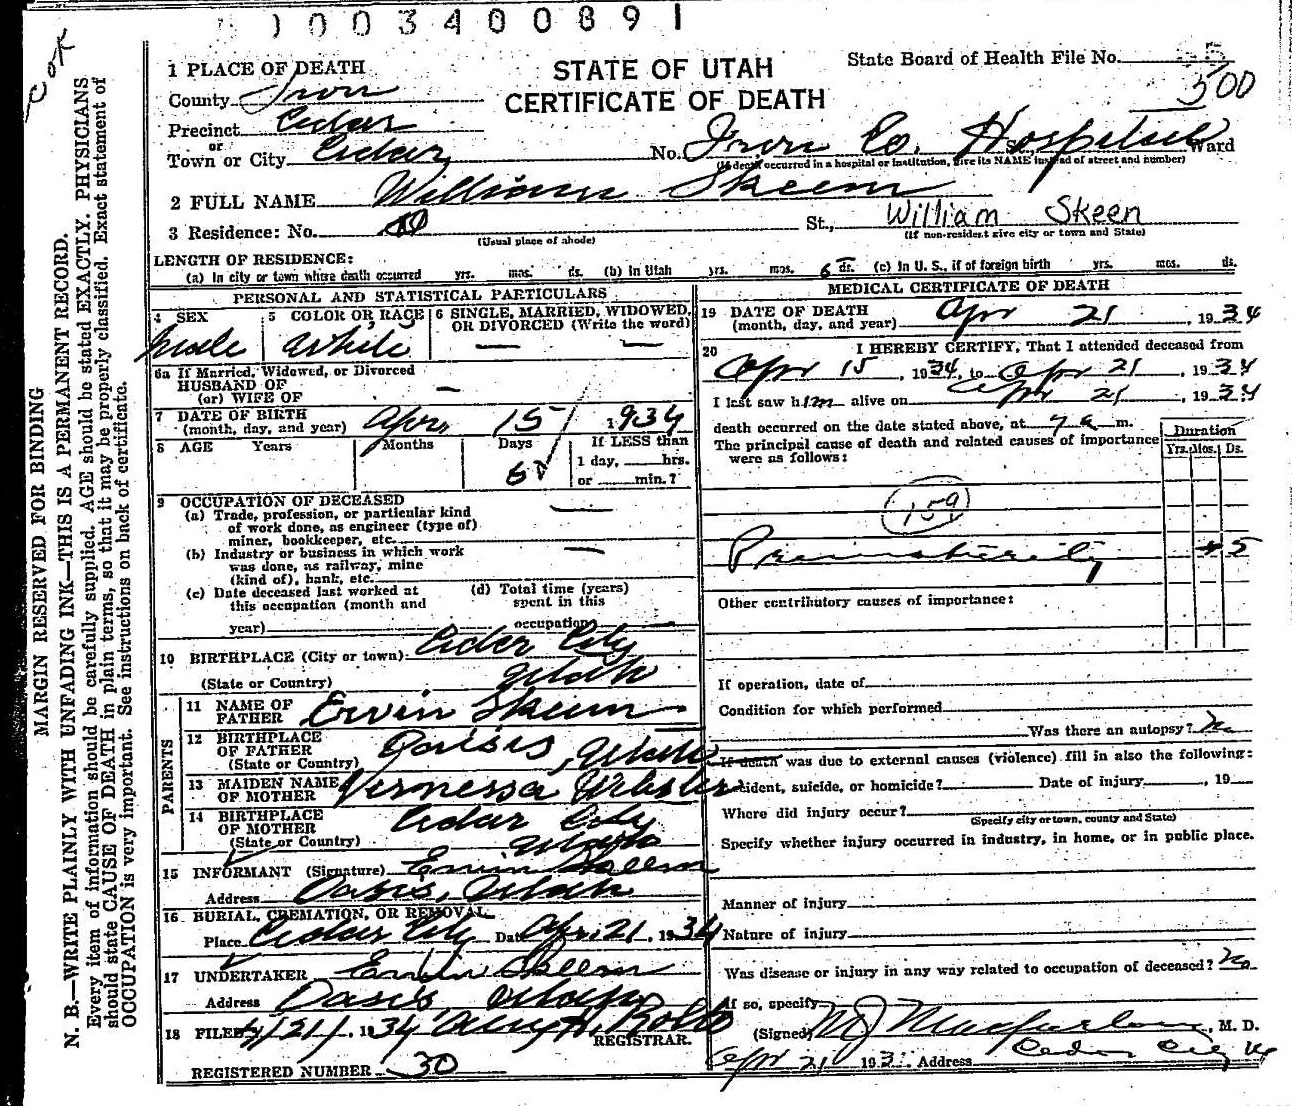 1003400891
1 PLACE OF DEATH
STATE OF UTAH
CERTIFICATE OF DEATH
State Board of Health File No.
500
County Iron
Precinct Cedar
or
Town or City Cedar No. Iron Co. Hospital Ward
(If death occurred in a hospital or institution, give its NAME instead of street and number)
2 FULL NAME William Skeem
3 Residence: No. St., William Skeen
(Usual place of abode) (If non-resident give city or town and State)
LENGTH OF RESIDENCE:
(a) In city or town where death occurred yrs. mos. ds. (b) In Utah yrs. mos. 6 ds. (c) In U. S., if of foreign birth yrs. mos. ds.
PERSONAL AND STATISTICAL PARTICULARS
4 SEX male
5 COLOR OR RACE white
6 SINGLE, MARRIED, WIDOWED, OR DIVORCED (Write the word) — —
6a If Married, Widowed, or Divorced
HUSBAND OF
(or) WIFE OF —
7 DATE OF BIRTH
(month, day, and year) Apr. 15 1934
8 AGE Years Months Days If LESS than
6 1 day, hrs.
or min.?
9 OCCUPATION OF DECEASED
(a) Trade, profession, or particular kind
of work done, as engineer (type of)
miner, bookkeeper, etc. —
(b) Industry or business in which work
was done, as railway, mine
(kind of), bank, etc. —
(c) Date deceased last worked at
this occupation (month and
year)
(d) Total time (years)
spent in this
occupation
10 BIRTHPLACE (City or town) Cedar City
(State or Country) Utah
PARENTS
11 NAME OF
FATHER Ervin Skeem
12 BIRTHPLACE
OF FATHER Oasis, Utah
(State or Country)
13 MAIDEN NAME
OF MOTHER Vernessa Webster
14 BIRTHPLACE
OF MOTHER Cedar City
(State or Country) Utah
15 INFORMANT (Signature) Ervin Skeem
Address Oasis, Utah
16 BURIAL, CREMATION, OR REMOVAL
Place Cedar City Date Apr. 21, 1934
17 UNDERTAKER Ervin Skeem
Address Oasis, Utah
18 FILED 4/21/1934
REGISTRAR.
REGISTERED NUMBER 30
MEDICAL CERTIFICATE OF DEATH
19 DATE OF DEATH
(month, day, and year) Apr 21, 1934
20 I HEREBY CERTIFY, That I attended deceased from
Apr 15, 1934, to Apr 21, 1934
I last saw him alive on Apr 21, 1934
death occurred on the date stated above, at 7 a m.
The principal cause of death and related causes of importance
were as follows:
Duration
Yrs. Mos. Ds.
159
Prematurity 5
Other contributory causes of importance:
If operation, date of
Condition for which performed
Was there an autopsy? No
If death was due to external causes (violence) fill in also the following:
Accident, suicide, or homicide? Date of injury , 19
Where did injury occur?
(Specify city or town, county and State)
Specify whether injury occurred in industry, in home, or in public place.
Manner of injury
Nature of injury
Was disease or injury in any way related to occupation of deceased? No
If so, specify
(Signed) M J Macfarlane, M. D.
Apr 21 193 Address Cedar City Ut
MARGIN RESERVED FOR BINDING
N. B.—WRITE PLAINLY WITH UNFADING INK—THIS IS A PERMANENT RECORD.
Every item of information should be carefully supplied. AGE should be stated EXACTLY. PHYSICIANS
should state CAUSE OF DEATH in plain terms, so that it may be properly classified. Exact statement of
OCCUPATION is very important. See instructions on back of certificate.